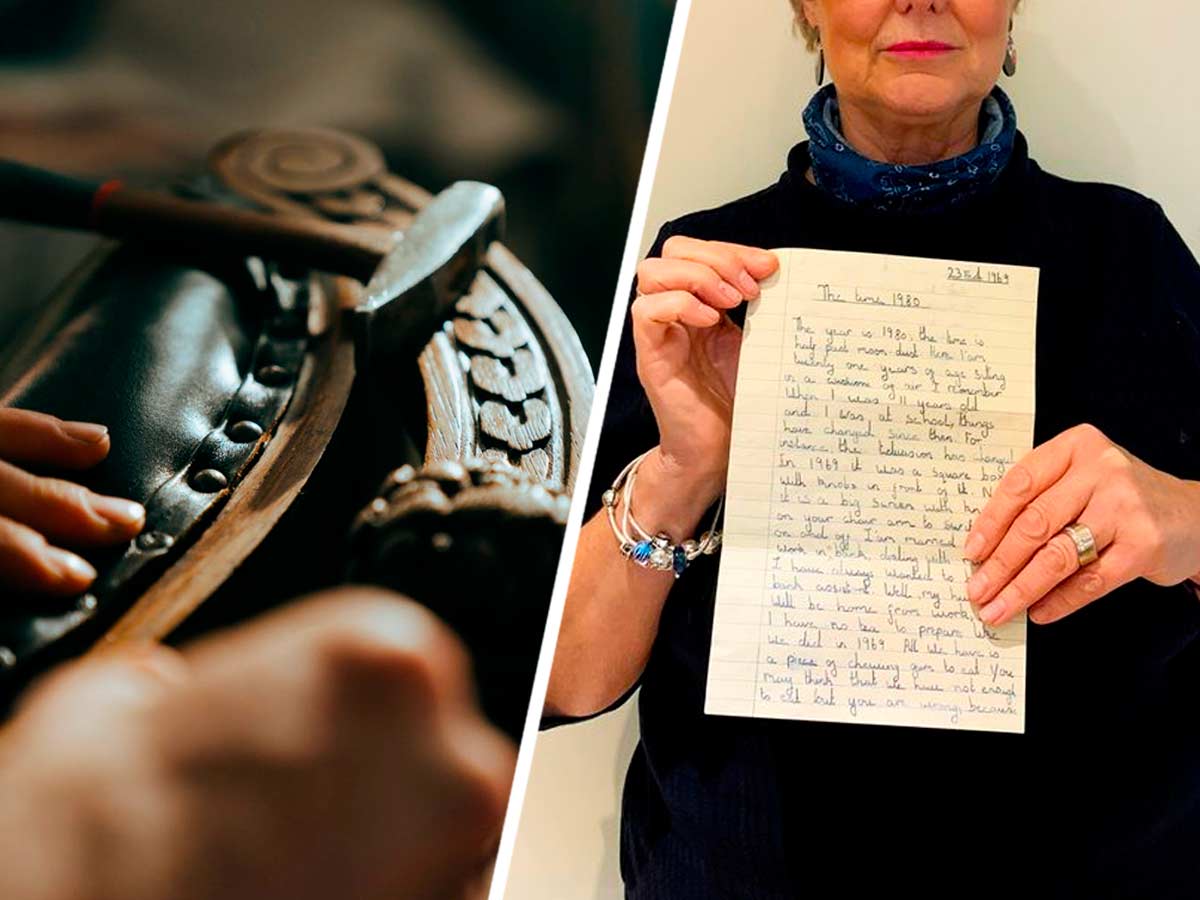 23rd 1969
The time 1980
The year is 1980, the time is
half past moon dust. Here I'am
twenty one years of age siting
in a cushion of air I remember
When I was 11 years old
and I was at school, things
have changed since then. For
instance, the television has changed
In 1969 it was a square box
with knobs in front of it
it is a big screen with
on your chair arm to
on and off. I'am married
work in bank, dealing with
I have always wanted to
bank Well, my
will be home from work,
I have no tea to prepare like
we did in 1969. All we have is
a piece of chewing gum to eat You
may think that we have not enough
to eat but you are wrong, because